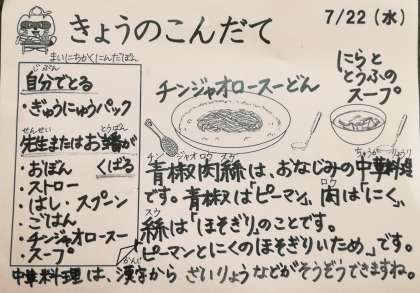 きょうのこんだて
7/22（水）
まいにちかくにんだぱん
じぶん
自分でとる
・ぎゅうにゅうパック
せんせい とうばん
先生またはお当番が
くばる
・おぼん
・ストロー
・はし・スプーン
・ごはん
・チンジャオロースー
・スープ
チンジャオロースーどん
にらと
とうふの
スープ
チンジャオロウスウ
ちゅうかりょうり
青椒肉絲は、おなじみの中華料理
です。青椒は「ピーマン」、肉は「にく」、
ロウ
スウ
絲は「ほそぎり」のことです。
「ピーマンとにくのほそぎりいため」です。
中華料理は、漢字から ざいりょうなどがそうぞうできますね。
かんじ